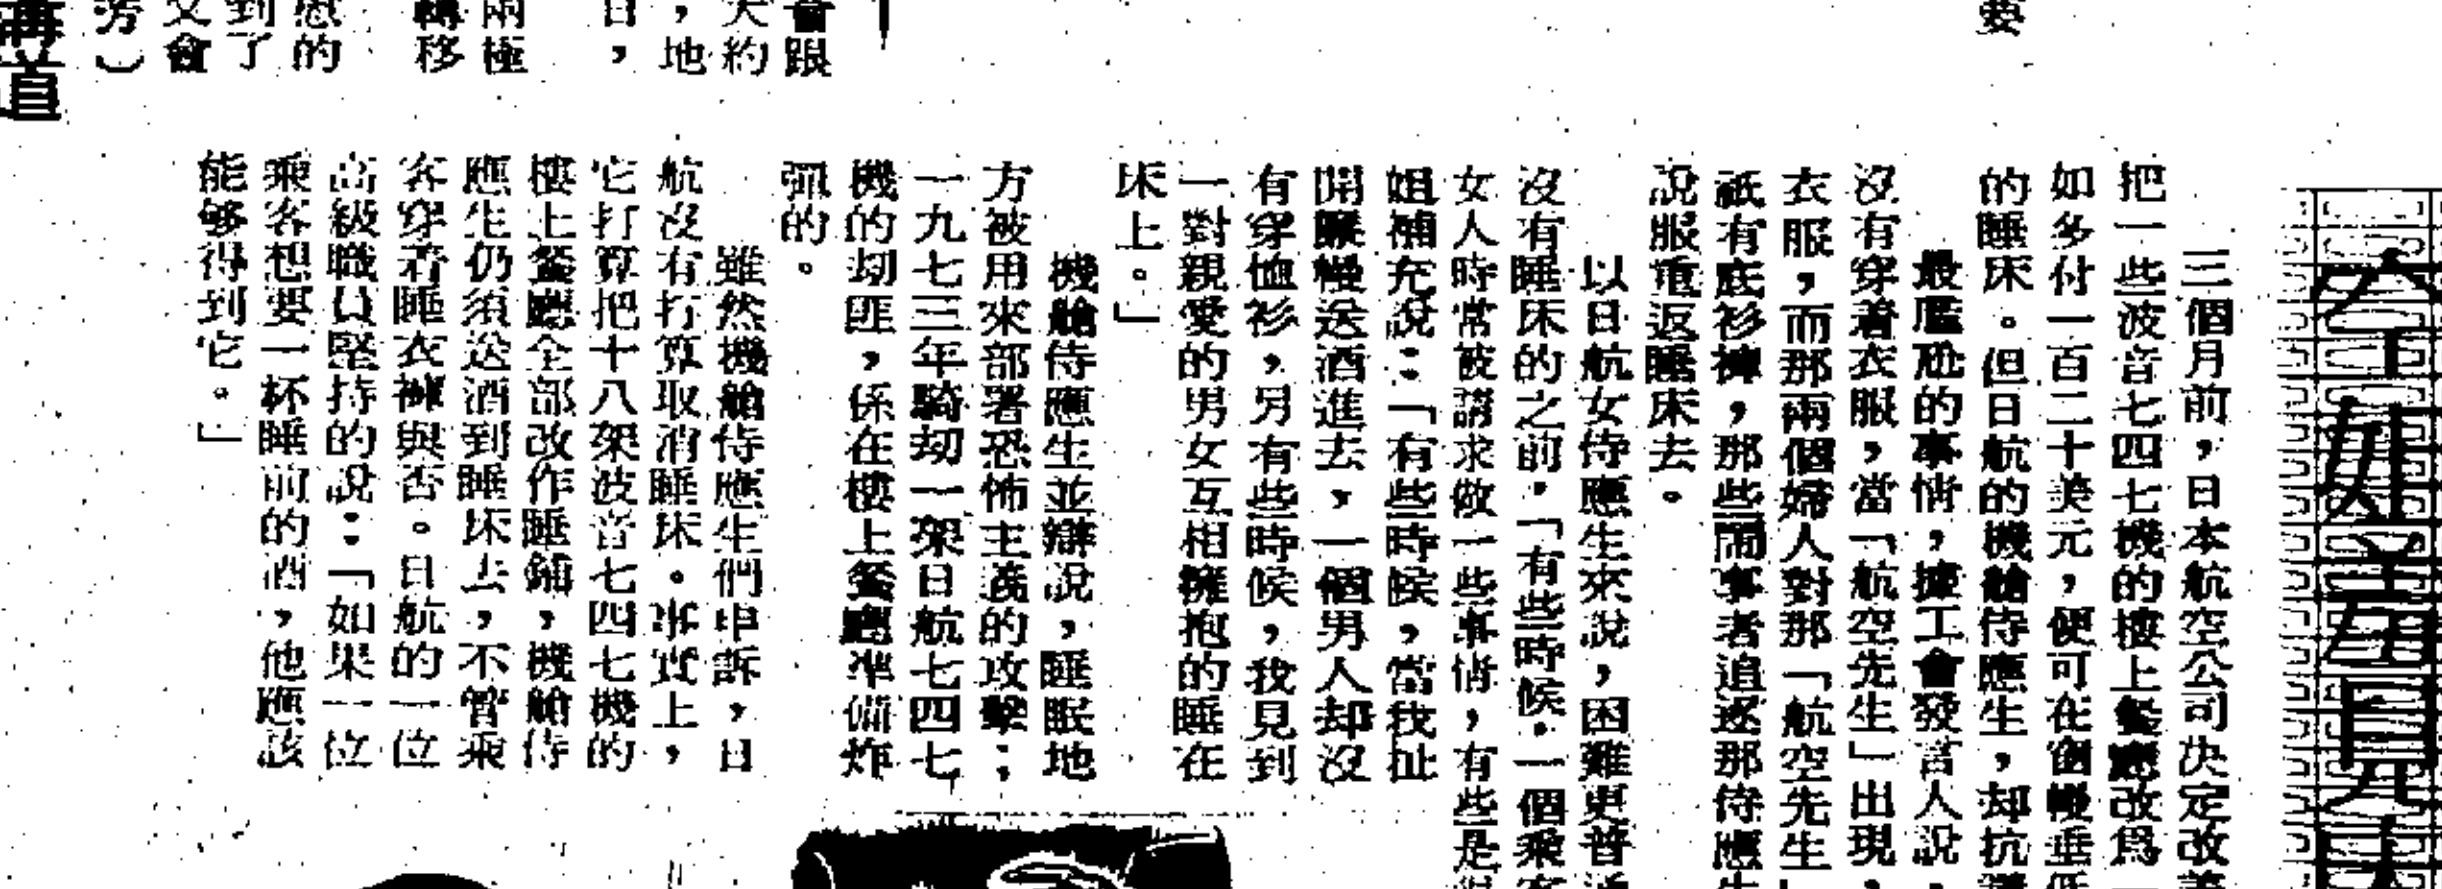 空姐
三個月前，日本航空公司決定改善
把一些波音七四七機的樓上餐廳改爲
如多付一百二十美元，便可在窗幔垂低
的睡床。但日航的機艙侍應生，却抗議
最尷尬的事情，據工會發言人說，
沒有穿着衣服，當「航空先生」出現，
衣服，而那兩個婦人對那「航空先生」
祇有底衫褲，那些鬧事者追逐那侍應生
說服重返睡床去。
以日航女侍應生來說，困難更普通
沒有睡床的之前，「有些時候，一個乘客
女人時常被請求做一些事情，有些是
姐補充說：「有些時候，當我扯
開簾幔送酒進去，一個男人却沒
有穿恤衫，另有些時候，我見到
一對親愛的男女互相擁抱的睡在
床上。」
機艙侍應生並辯說，睡眠地
方被用來部署恐怖主義的攻擊；
一九七三年騎刧一架日航七四七
機的刧匪，係在樓上餐廳準備炸
彈的。
雖然機艙侍應生們申訴，日
航沒有打算取消睡床。事實上，
它打算把十八架波音七四七機的
樓上餐廳全部改作睡鋪，機艙侍
應生仍須送酒到睡床去，不管乘
客穿着睡衣褲與否。日航的一位
高級職員堅持的說：「如果一位
乘客想要一杯睡前的酒，他應該
能够得到它。」
要
會跟
天約
，地
日，
兩極
轉移
慰的
到了
文會
芳）
道